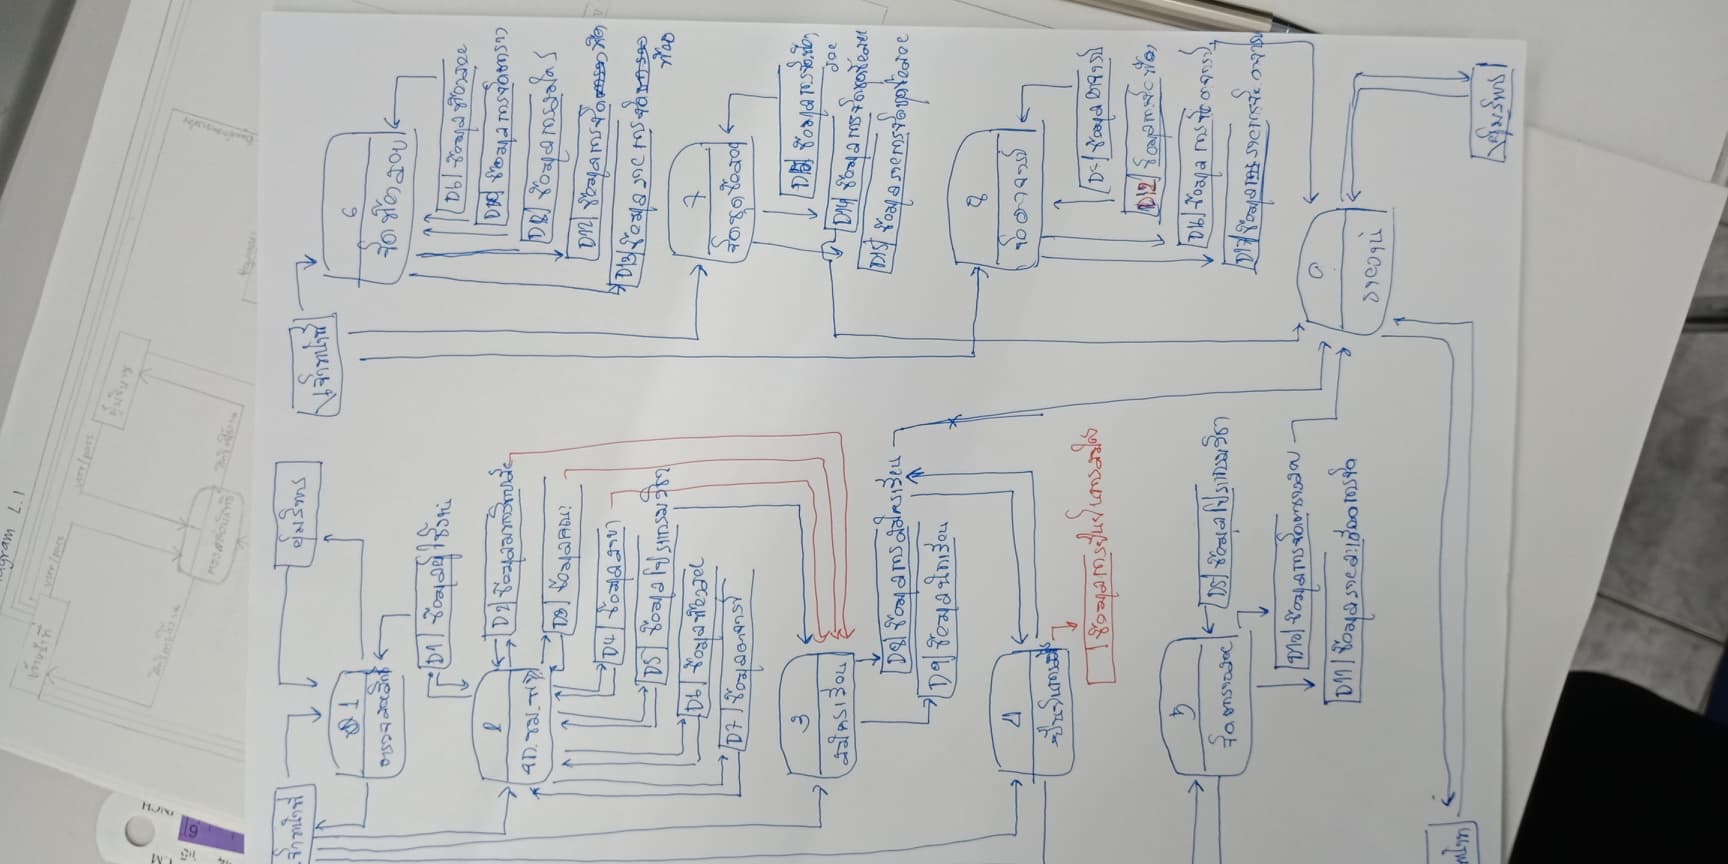 diagram L.1
เจ้าหน้าที่
user/pass
user/pass
ผู้บริหาร
เจ้าหน้าที่
ผู้บริหาร
1
ตรวจสอบสิทธิ์
D1 ข้อมูลผู้ใช้งาน
2
D2 ข้อมูล
D3 ข้อมูลคณะ
D4 ข้อมูลสาขา
D5 ข้อมูลโปรแกรมวิชา
D6 ข้อมูลห้องสอบ
D7 ข้อมูลอาจารย์
3
สมัครเรียน
D8 ข้อมูลการสมัครเรียน
D9 ข้อมูลนักเรียน
4
ยืนยันการสมัคร
ข้อมูลการยืนยันการสมัคร
5
จัดตารางสอบ
D5 ข้อมูลโปรแกรมวิชา
D10 ข้อมูลการจัดตารางสอบ
D11 ข้อมูลรายละเอียดการจัด
เจ้าหน้าที่
6
จัดห้องสอบ
D6 ข้อมูลห้องสอบ
D10 ข้อมูลการจัดตาราง
D8 ข้อมูลการสมัคร
D12 ข้อมูลการจัด ห้อง
D13 ข้อมูลรายการจัด
ห้อง
7
จัดชุดข้อสอบ
ข้อมูลการจัดห้อง
สอบ
D14 ข้อมูลการจัดชุดข้อสอบ
D15 ข้อมูลรายการจัดชุดข้อสอบ
8
จัดอาจารย์
ข้อมูลอาจารย์
D12 ข้อมูลการจัดห้อง
D16 ข้อมูลการจัดอาจารย์
D17 ข้อมูลรายการจัดอาจารย์
9
รายงาน
ผู้บริหาร